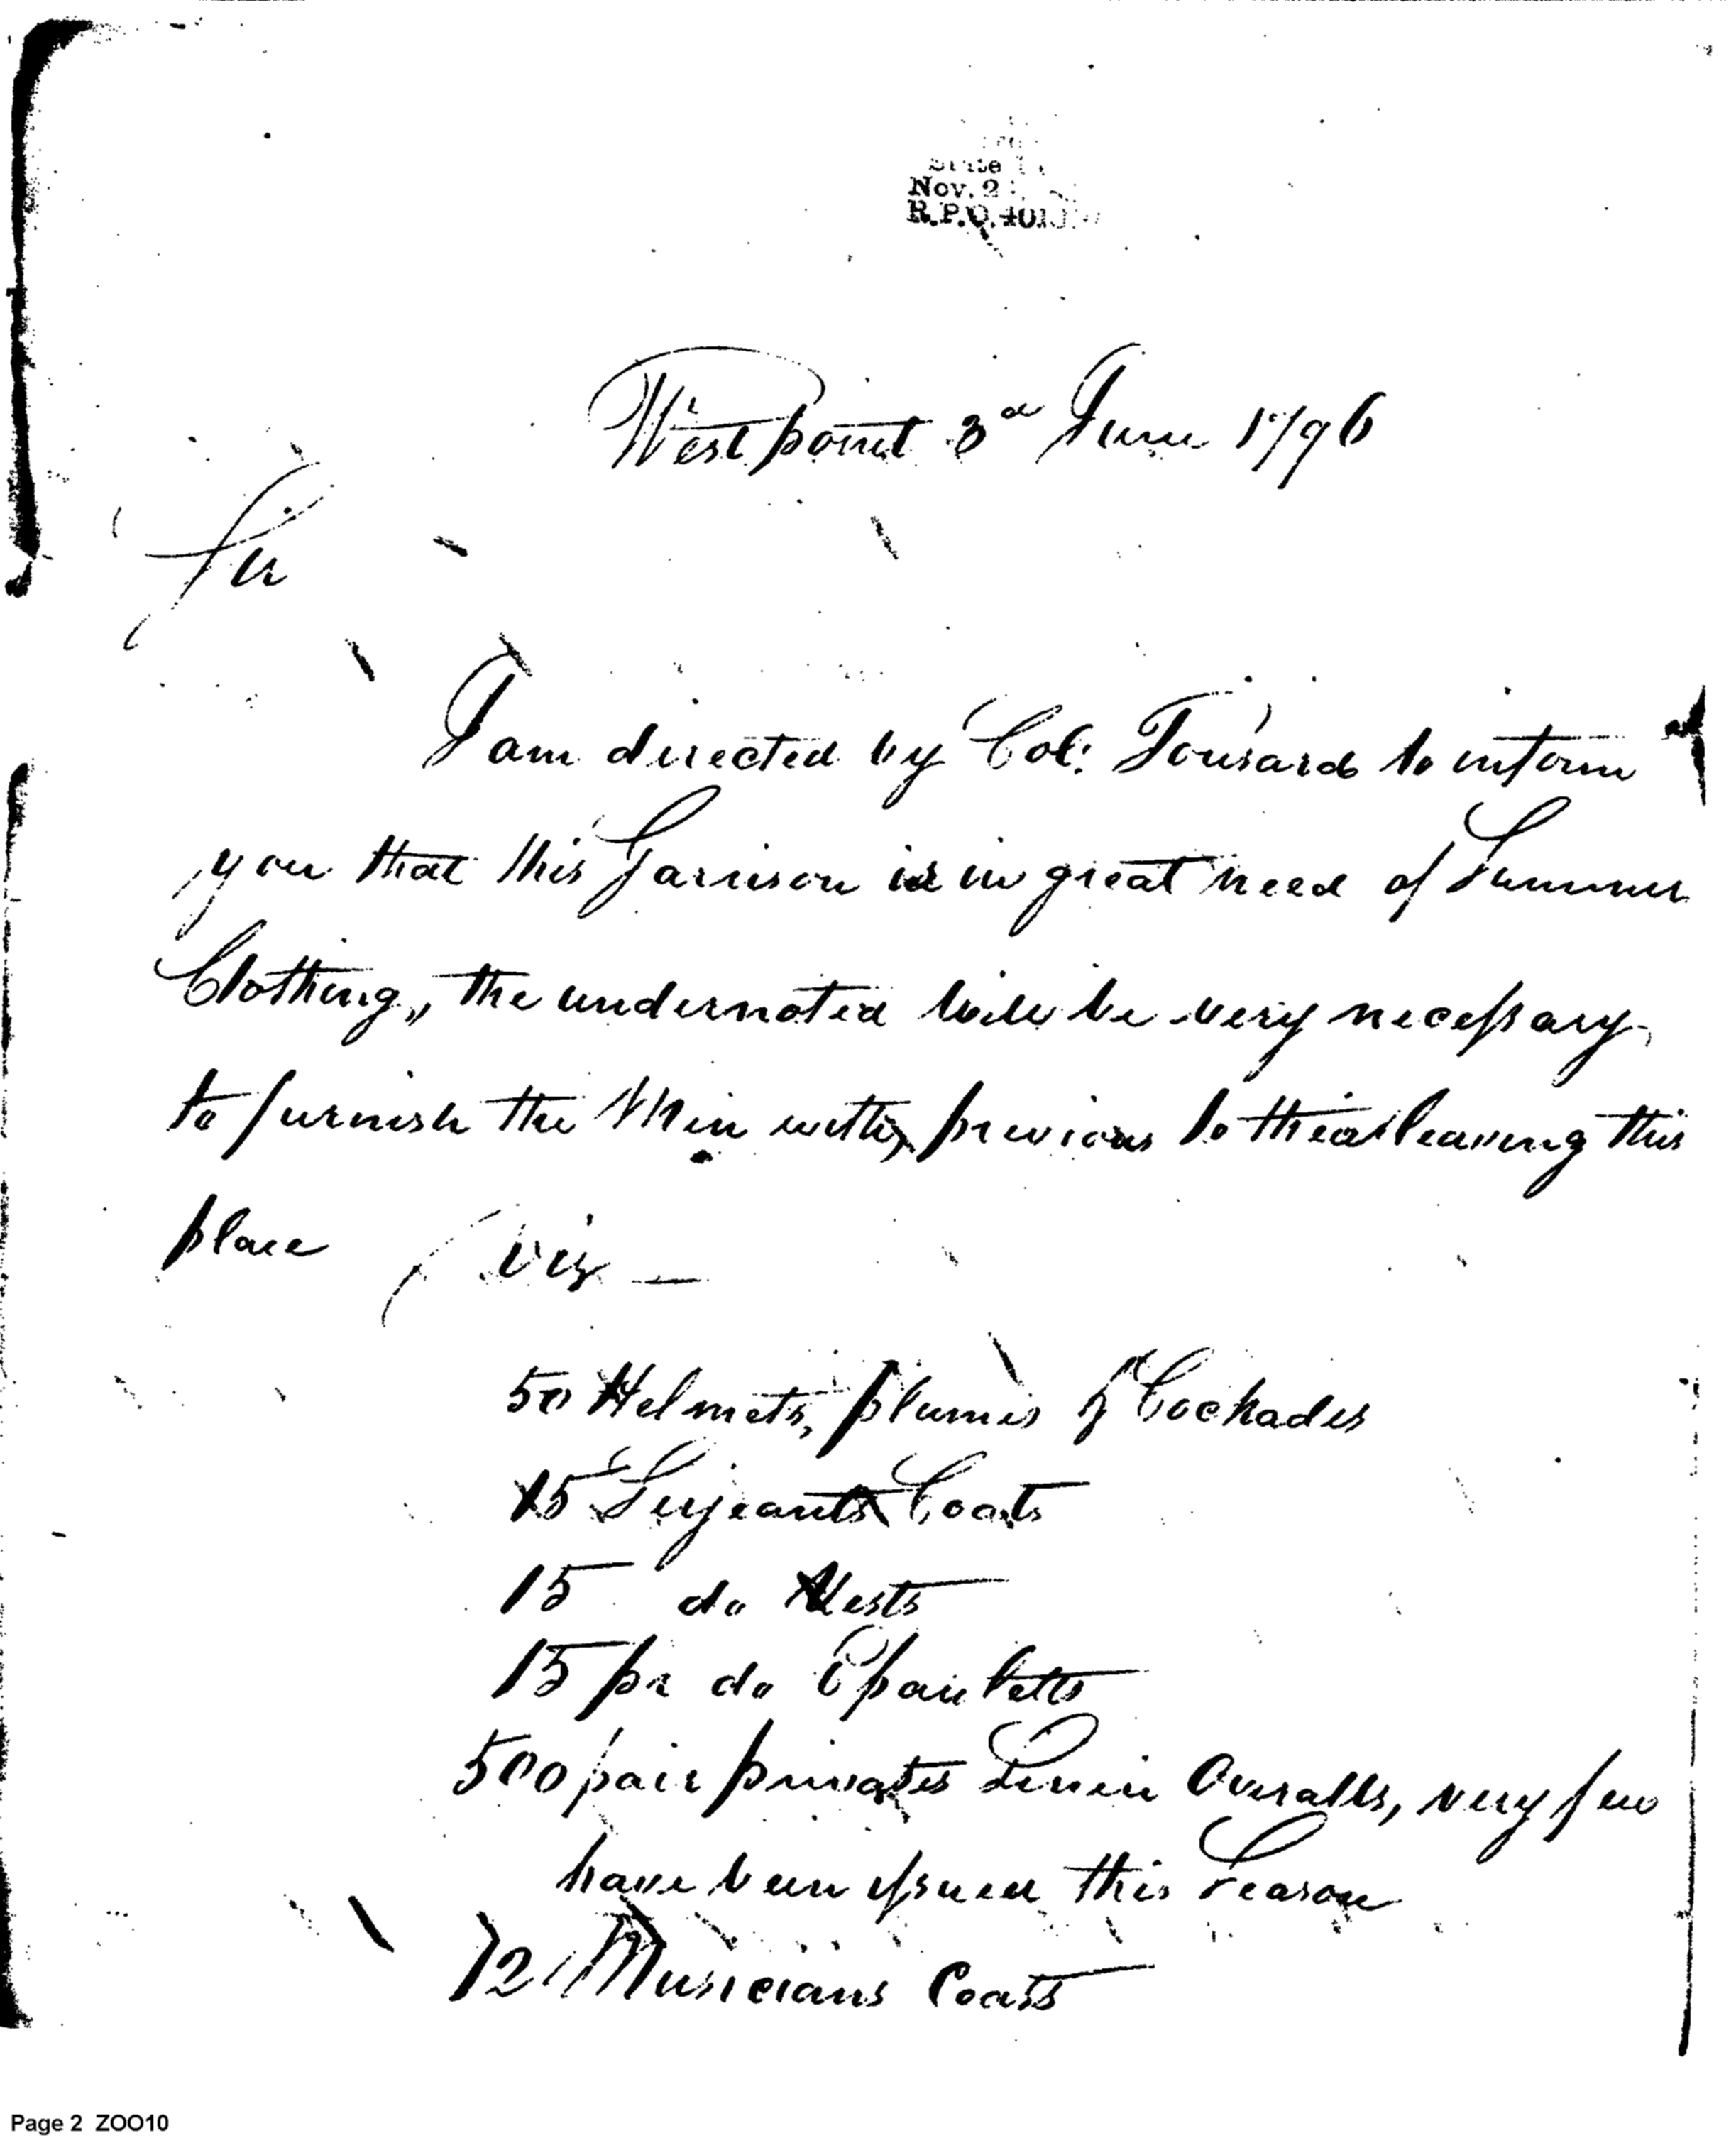 State
Nov. 2
R.P.O. 401
West point 3d June 1796
Sir
I am directed by Col: Tousard to inform
you that this Garrison is in great need of Summer
Clothing,, the undernoted will be very necessary
to furnish the Men with, previous to their leaving this
place viz —
50 Helmets, plumes & Cockades
15 Serjeants Coats
15 do Vests
15 pr do Epauletts
500 pair privates Linen Overalls, very few
have been issued this Season
12 Musicians Coats
Page 2 ZOO10